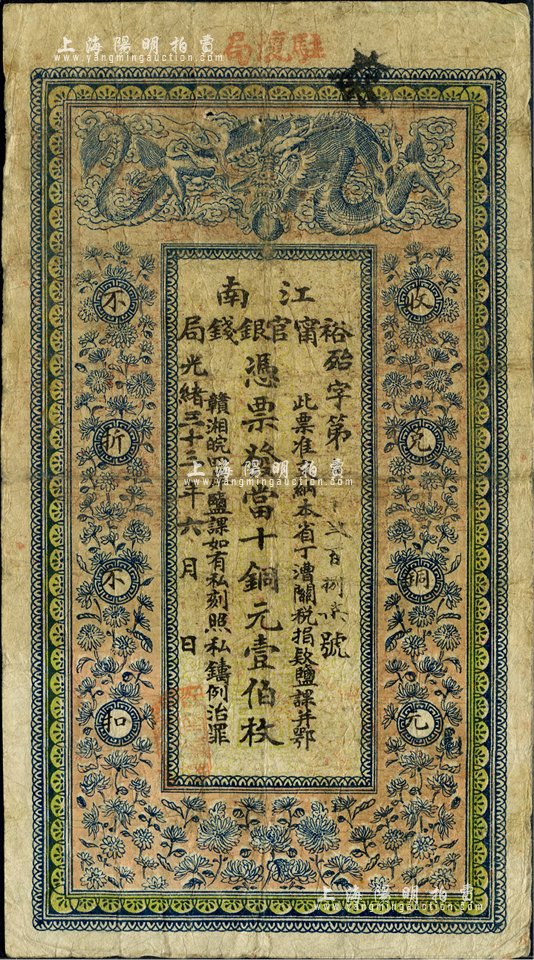 上海陽明拍賣
www.yangmingauction.com
駐滬局
江南
裕甯官銀錢局
字第
貳百捌
號
此票准
納本省丁漕關稅捐款鹽課并鄂
憑票發當十銅元壹佰枚
贛湘皖
鹽課如有私刻照私鑄例治罪
光緒三十三年六月 日
收兌銅元
不折不扣
上海陽明拍賣
www.yangmingauction.com
上海陽明拍賣
www.yangmingauction.com